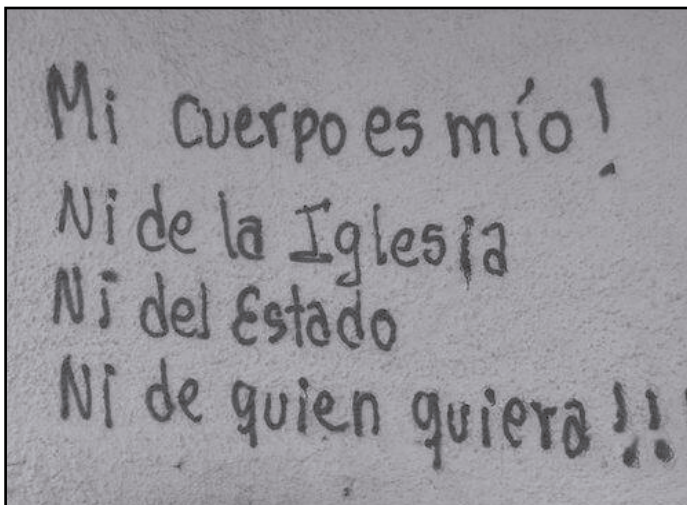 Mi cuerpo es mío!
Ni de la Iglesia
Ni del Estado
Ni de quien quiera!!!